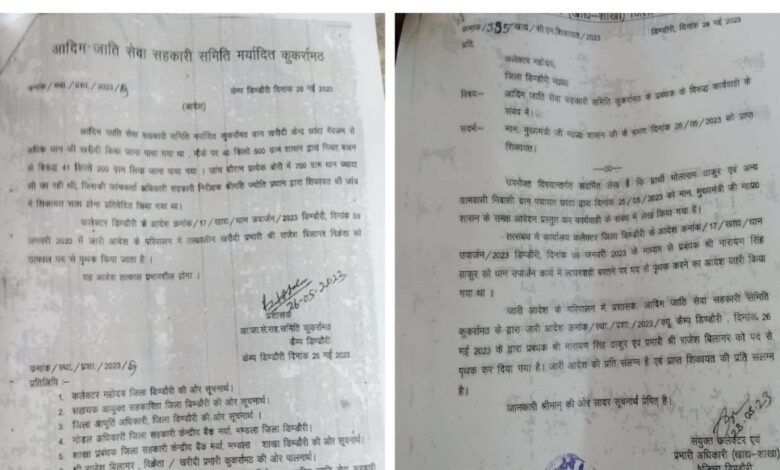 आदिम जाति सेवा सहकारी समिति मर्यादित कुकर्रामठ
क्रमांक/स्था./प्रशा./2023/
कैम्प डिण्डौरी दिनांक 26 मई 2023
(आदेश)
आदिम जाति सेवा सहकारी समिति मर्यादित कुकर्रामठ धान खरीदी केन्द्र छांटा मेंवजन से
अधिक धान की खरीदी किया जाना पाया गया था, मौके पर 40 किलो 500 ग्राम शासन द्वारा नियत वजन
के विरूद्ध 41 किलो 200 ग्राम लिया जाना पाया गया। जांच दौरान प्रत्येक बोरी में 700 ग्राम धान ज्यादा
ली जा रही थी, जिसकी जांचकर्ता अधिकारी सहकारी निरीक्षक श्रीमति ज्योति प्रधान द्वारा शिकायत की जांच
में शिकायत सत्य होना प्रतिवेदित किया गया था।
कलेक्टर डिण्डौरी के आदेश क्रमांक/17/खाद्य/धान उपार्जन/2023 डिण्डौरी, दिनांक 09
जनवरी 2023 में जारी आदेश के परिपालन में तत्कालीन खरीदी प्रभारी श्री राजेश बिलागर विक्रेता को
तत्काल पद से पृथक किया जाता है।
यह आदेश तत्काल प्रभावशील होगा।
26-05-2023
प्रशासक
आ.जा.से.सह.समिति कुकर्रामठ
कैम्प डिण्डौरी
क्रमांक/स्था./प्रशा./2023/
कैम्प डिण्डौरी दिनांक 26 मई 2023
प्रतिलिपि :-
1. कलेक्टर महोदय जिला डिण्डौरी की ओर सूचनार्थ।
2. सहायक आयुक्त सहकारिता जिला डिण्डौरी की ओर सूचनार्थ।
3. जिला आपूर्ति अधिकारी, जिला डिण्डौरी की ओर सूचनार्थ।
4. नोडल अधिकारी जिला सहकारी केन्द्रीय बैंक मर्या. मण्डला जिला डिण्डौरी।
5. शाखा प्रबंधक जिला सहकारी केन्द्रीय बैंक मर्या. मण्डला शाखा डिण्डौरी की ओर सूचनार्थ।
6. श्री राजेश बिलागर, विक्रेता / खरीदी प्रभारी कुकर्रामठ की ओर पालनार्थ।
(खाद्य-शाखा)
क्रमांक/395/खाद्य/सी.एम.शिकायत/2023
डिण्डौरी, दिनांक 28 मई 2023
प्रति,
कलेक्टर महोदय,
जिला डिण्डौरी म0प्र0
विषय:- आदिम जाति सेवा सहकारी समिति कुकर्रामठ के प्रबंधक के विरूद्ध कार्यवाही के
संबंध में।
संदर्भ:- मान. मुख्यमंत्री जी म0प्र0 शासन जी के भ्रमण दिनांक 25/05/2023 को प्राप्त
शिकायत।
—00—
उपरोक्त विषयान्तर्गत संदर्भित लेख है कि प्रार्थी भोलाराम ठाकुर एवं अन्य
ग्रामवासी निवासी ग्राम पंचायत छांटा द्वारा दिनांक 25/05/2023 को मान. मुख्यमंत्री जी म0प्र0
शासन के समक्ष आवेदन प्रस्तुत कर कार्यवाही के संबंध में लेख किया गया है।
तत्संबंध में कार्यालय कलेक्टर जिला डिण्डौरी के आदेश क्रमांक/17/खाद्य/धान
उपार्जन/2023 डिण्डौरी, दिनांक 09 जनवरी 2023 के माध्यम से प्रबंधक श्री नारायण सिंह
ठाकुर को धान उपार्जन कार्य में लापरवाही बरतने पर पद से पृथक करने का आदेश जारी किया
गया था।
जारी आदेश के परिपालन में प्रशासक, आदिम जाति सेवा सहकारी समिति
कुकर्रामठ के द्वारा जारी आदेश क्रमांक/स्था./प्रशा./2023/क्यू कैम्प डिण्डौरी, दिनांक 26
मई 2023 के द्वारा प्रबंधक श्री नारायण सिंह ठाकुर एवं प्रभारी श्री राजेश बिलागर को पद से
पृथक कर दिया गया है। जारी आदेश की प्रति संलग्न है एवं प्राप्त शिकायत की प्रति संलग्न
है।
जानकारी श्रीमान् की ओर सादर सूचनार्थ प्रेषित है।
संयुक्त कलेक्टर एवं
प्रभारी अधिकारी (खाद्य-शाखा)
डिण्डौरी